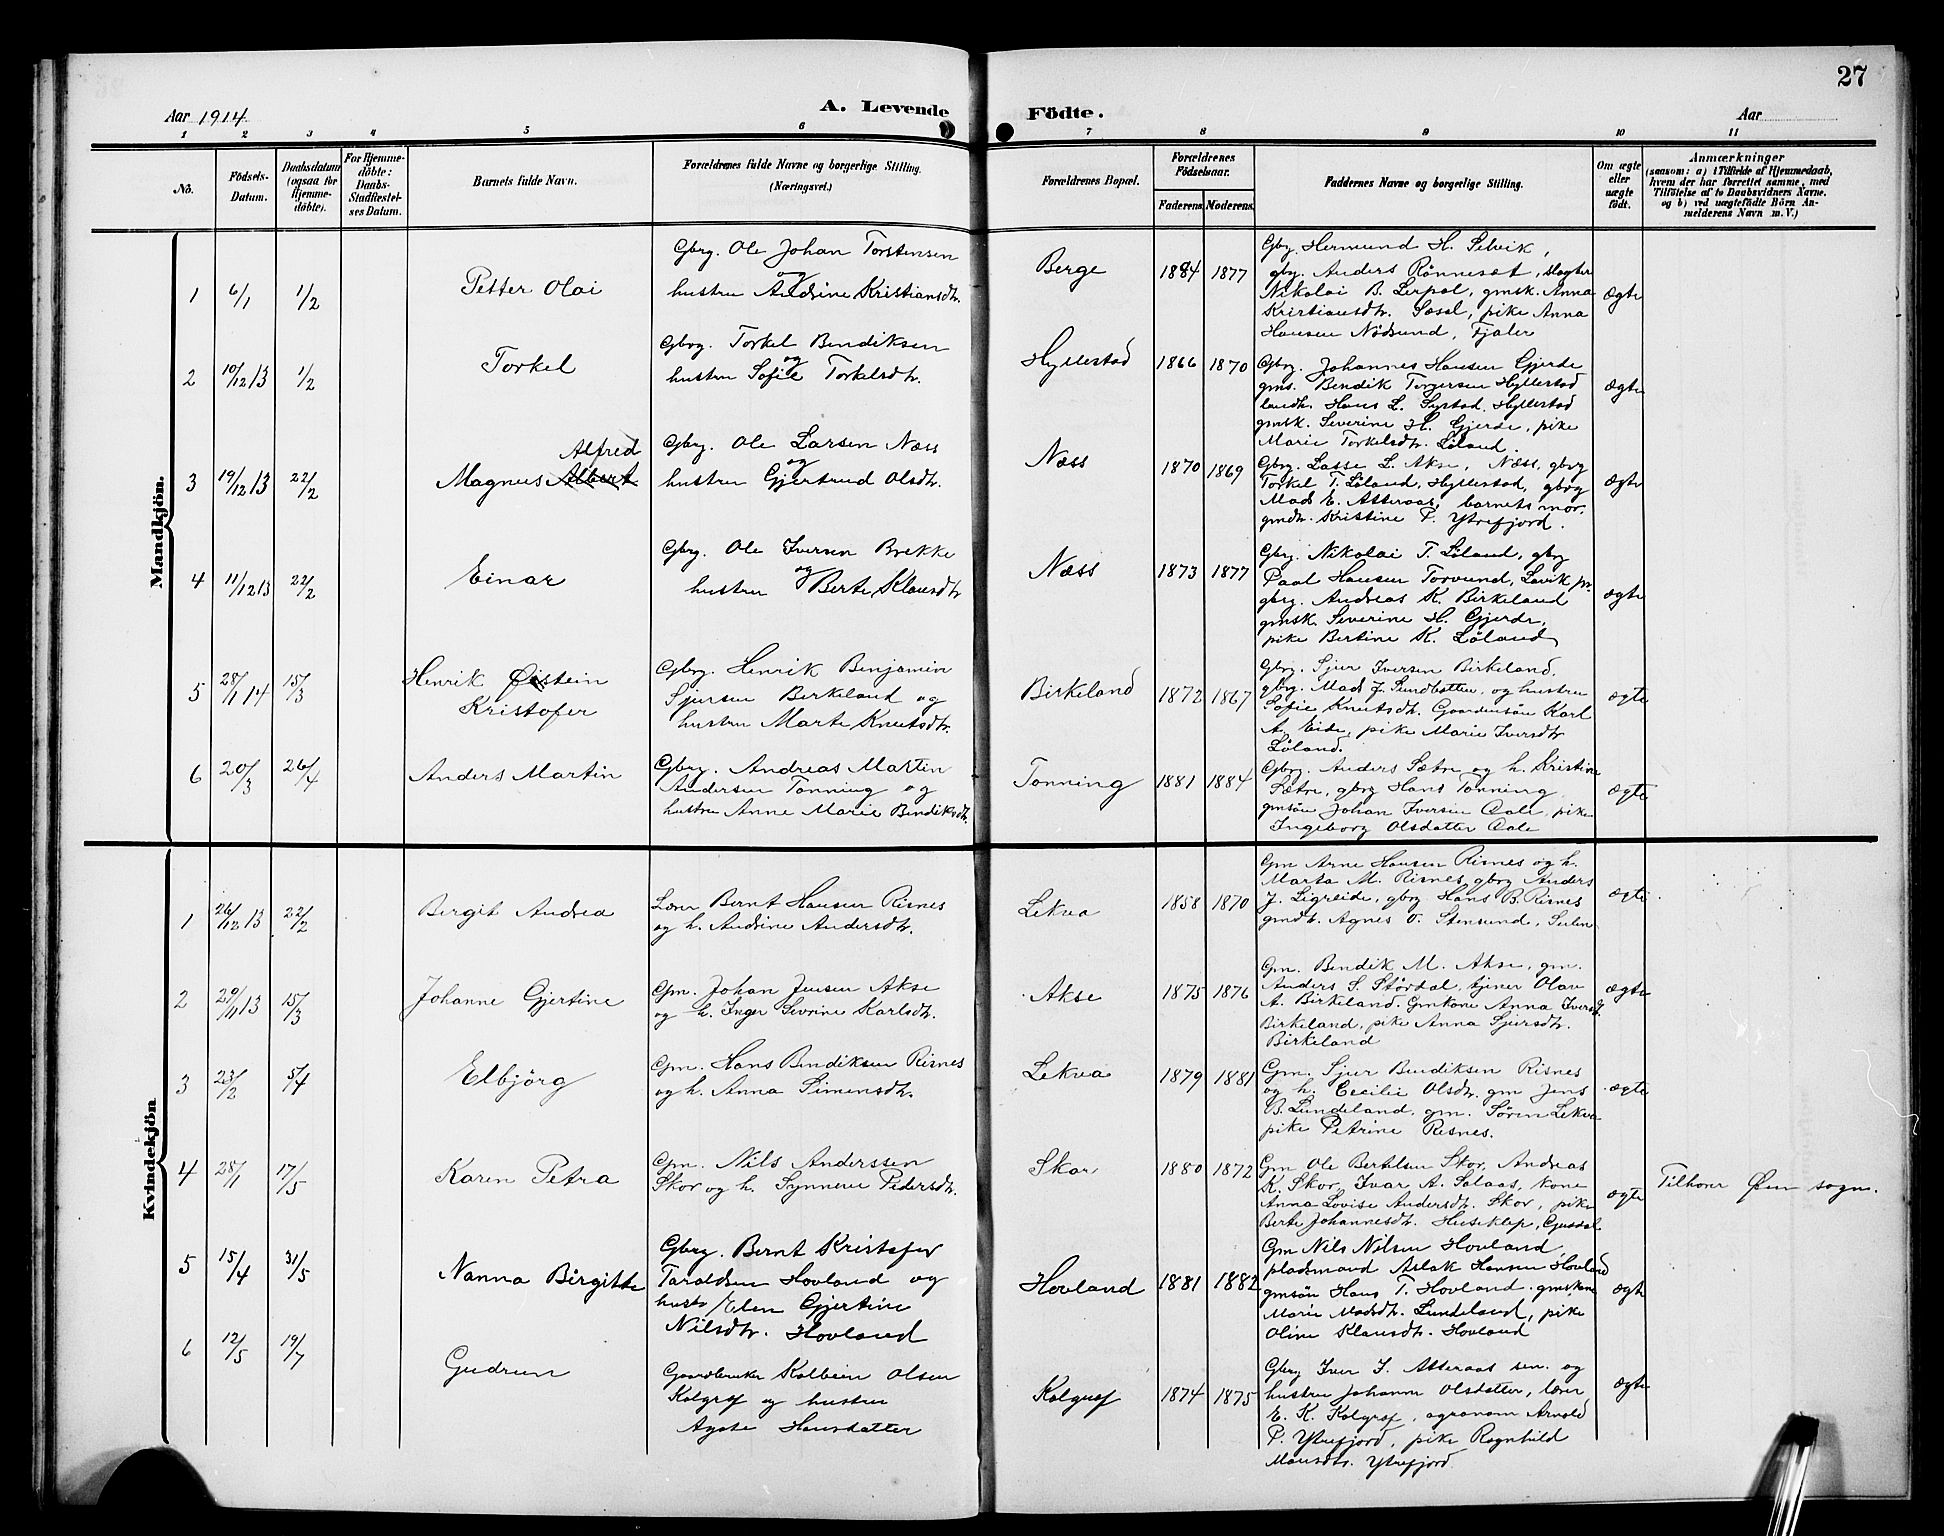 27
Aar 1914
A. Levende Födte.
Aar
1 2 3 4 5 6 7 8 9 10 11
No.
Födsels-Datum.
Daabsdatum (ogsaa for Hjemme-döbte).
For Hjemme-döbte: Daabs-Stadfæstel-ses Datum.
Barnets fulde Navn.
Forældrenes fulde Navne og borgerlige Stilling. (Næringsvei.)
Forældrenes Bopæl.
Forældrenes Födselsaar.
Faderens. Moderens.
Faddernes Navne og borgerlige Stilling.
Om ægte eller uægte födt.
Anmærkninger
(saasom: a) i Tilfælde af Hjemmedaab, hvem der har forrettet samme, med Tilföielse af to Daabsvidners Navne, og b) ved uægtefödte Börn An-melderens Navn m. V.)
Mandkjön.
1 6/1 1/2 Petter Olai
Gbrg. Ole Johan Torstensen
og
hustru Andrine Kristiansdtr.
Berge 1884 1877
Gbrg. Hermund H. Selvik,
gbrg. Anders Rönneset, slagter
Nikolai B. Lerpol, gmsk. Anna
Kristiansdtr. Sosol, pike Anna
Hansen Nödsund, Fjaler
Ægte
2 10/12 13 1/2 Torkel
Gbrg. Torkel Bendiksen
og
hustru Sofie Torkelsdtr.
Hyllestad 1866 1870
Gbrg. Johannes Hansen Gjerde
gms. Bendik Torgersen Hyllestad
landh. Hans L. Systad, Hyllestad
gmsk. Severine H. Gjerde, pike
Marie Torkelsdtr. Löland.
Ægte
3 19/12 13 22/2 Alfred
Magnus Albert
Gbrg. Ole Larsen Næss
og
hustru Gjertrud Olsdtr.
Næss 1870 1869
Gbrg. Lasse L. Akse, Næss, gbrg
Torkel T. Löland, Hyllestad, gbrg
Mads E. Atteraas, barnets mor,
gmdtr. Kristine P. Ytrefjord.
Ægte
4 11/12 13 22/2 Einar
Gbrg. Ole Iversen Brekke
og
hustru Berte Klausdtr
Næss 1873 1877
Gbrg. Nikolai T. Löland, gbrg
Paal Hansen Torvund, Lavik pr.
gbrg. Andreas K. Birkeland
gmsk. Severine H. Gjerde,
pike Bertine K. Löland
ægte
5 28/1 14 15/3 Henrik Øistein
Kristofer
Gbrg. Henrik Benjamin
Sjursen Birkeland og
hustru Marte Knutsdtr.
Birkeland 1872 1867
Gbrg. Sjur Iversen Birkeland,
gbrg. Mads J. Sundbotten, og hustru
Sofie Knutsdtr. Gaardmsön Karl
A. Eide, pike Marie Iversdtr
Löland.
ægte
6 20/3 26/4 Anders Martin
Gbrg. Andreas Martin
Andersen Tonning og
hustru Anne Marie Bendiksdtr.
Tonning 1881 1884
Gbrg. Anders Sætre og h. Kristine
Sætre, gbrg Hans Tonning
gmsön Johan Iversen Dale, pike
Ingeborg Olsdatter Dale
ægte
Kvindekjön
1 26/12 13 22/2 Bergit Andrea
Lærer Bernt Hansen Risnes
og h. Andrine Andersdtr.
Lekva 1858 1870
Gm Arne Hansen Risnes og h.
Marta M. Risnes, gbrg Anders
J. Ligreide, gbrg Hans B. Risnes
gmdtr. Agnes O. Stensund, Sulen
ægte
2 29/11 13 15/3 Johanne Gjertine
Gm. Johan Jensen Akse
og h. Inger Sevrine Karlsdtr.
Akse 1875 1876
Gm. Bendik M. Akse, gm.
Anders S. Stördal, tjener Olav
A. Birkeland. Gmkone Anna Iversd.
Birkeland, pike Anna Sjursdtr.
Birkeland
ægte
3 23/2 5/4 Elbjörg
Gm. Hans Bendiksen Risnes
og h. Anna Simensdtr.
Lekva 1879 1881
Gm. Sjur Bendiksen Risnes
og h. Cecilie Olsdtr. gm Jens
B. Lundeland, gm. Sören Lekva
pike Petrine Risnes.
ægte
4 28/1 17/5 Karen Petra
Gm. Nils Anderssen
Skor og h. Synneve Pedersdtr.
Skor 1880 1872
Gm Ole Bertilsen Skor, Andreas
K. Skor, Ivar A. Solaas, kone
Anna Lovise Andersdtr. Skor, pike
Berte Johannesdtr. Huseklep, Guddal
ægte
Tilhører Øen sogn.
5 15/4 31/5 Nanna Birgitte
Gbrg. Bernt Kristofer
Taraldsen Hovland og
hustr Elen Gjertine
Nilsdtr. Hovland
Hovland 1881 1882
Gm Nils Nilsen Hovland
pladsmand Aslak Hansen Hovland
gmsön Hans T. Hovland. gmskone
Marie Madsdtr. Lundeland, pike
Oline Klausdtr. Hovland
ægte
6 12/5 19/7 Gudrun
Gaardbruker Kolbein Olsen
Kolgrof og hustru
Agate Hansdatter
Kolgrof 1874 1875
Gbrg Iver I. Atteraas sen. og
hustru Johanne Olsdatter, lærer
E. K. Kolgrof, agronom Arnold
P. Ytrefjord, pike Ragnhild
Monsdtr. Ytrefjord.
ægte